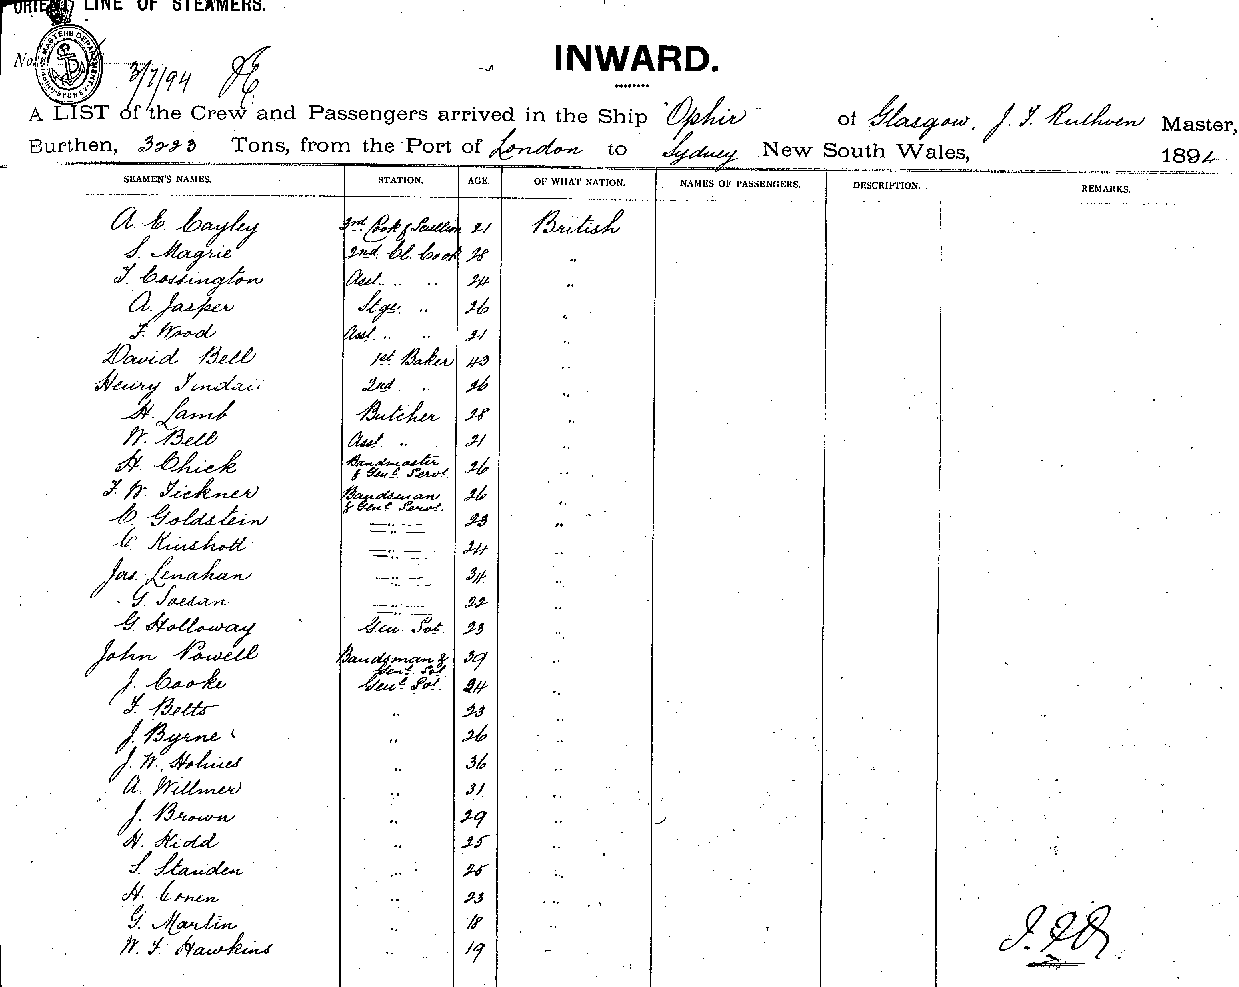 ORIENT LINE OF STEAMERS.
INWARD.
No.
3/7/94
A LIST of the Crew and Passengers arrived in the Ship "Ophir" of Glasgow, J. F. Ruthven Master,
Burthen, 3223 Tons, from the Port of London to Sydney New South Wales, 1894
SEAMEN'S NAMES. STATION. AGE. OF WHAT NATION. NAMES OF PASSENGERS. DESCRIPTION. REMARKS.
A. E. Cayley 3rd Cook & 21 British
S. Magrie 2nd Cl. Cook 28 "
F. Cossington Asst. " " 24 "
A. Jasper Stge. " 26 "
F. Wood Asst. " " 21 "
David Bell 1st Baker 43 "
Henry 2nd " 26 "
H. Lamb Butcher 28 "
W. Bell Asst. " 21 "
H. Chick Bandmaster & Genl. Servt. 26 "
F. W. Tickner Bandsman & Genl. Servt. 26 "
C. Goldstein " 23 "
C. Kinshott " 24 "
Jas. Lenahan " 34 "
G. " 22 "
G. Holloway Gen. Svt. 23 "
John Powell Bandsman & Genl. Svt. 39 "
J. Cooke Genl. Svt. 24 "
F. Betts " 23 "
J. Byrne " 26 "
J. W. Holmes " 36 "
A. Willmer " 31 "
J. Brown " 29 "
H. Kidd " 25 "
S. Standen " 25 "
H. Conen " 23 "
G. Martin " 18 "
W. F. Hawkins " 19 "